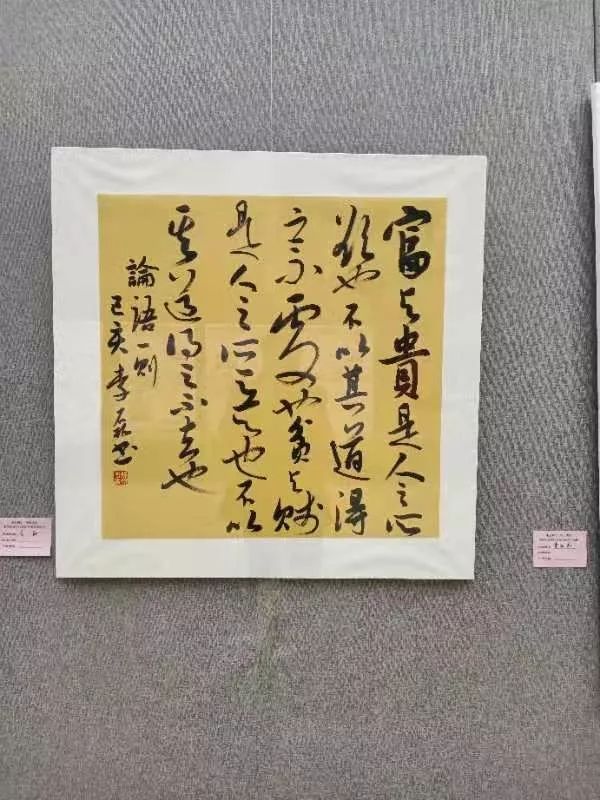 富与貴是人之所
欲也不以其道得
之不處也貧与賤
是人之所惡也不以
其道得之不去也
論語一則
己亥李磊书